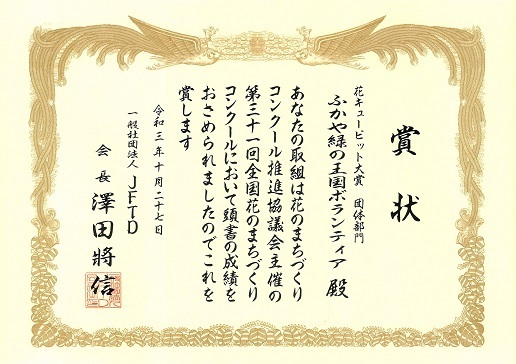 賞状
花キューピット大賞 団体部門
ふかや緑の王国ボランティア 殿
あなたの取組は花のまちづくり
コンクール推進協議会主催の
第三十一回全国花のまちづくり
コンクールにおいて頭書の成績を
おさめられましたのでこれを
賞します
令和三年十月二十七日
一般社団法人 JFTD
会長 澤田將信